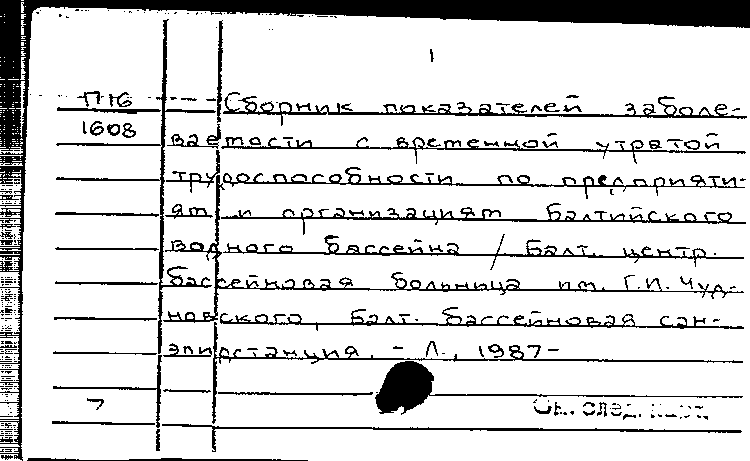 1
П16 Сборник показателей заболе-
1608 ваемости с временной утратой
трудоспособности по предприяти-
ям и организациям Балтийского
водного бассейна / Балт. центр.
бассейновая больница им. Г.И. Чуд-
новского, Балт. бассейновая сан-
эпидстанция. - Л., 1987-
7 См. след. карт.